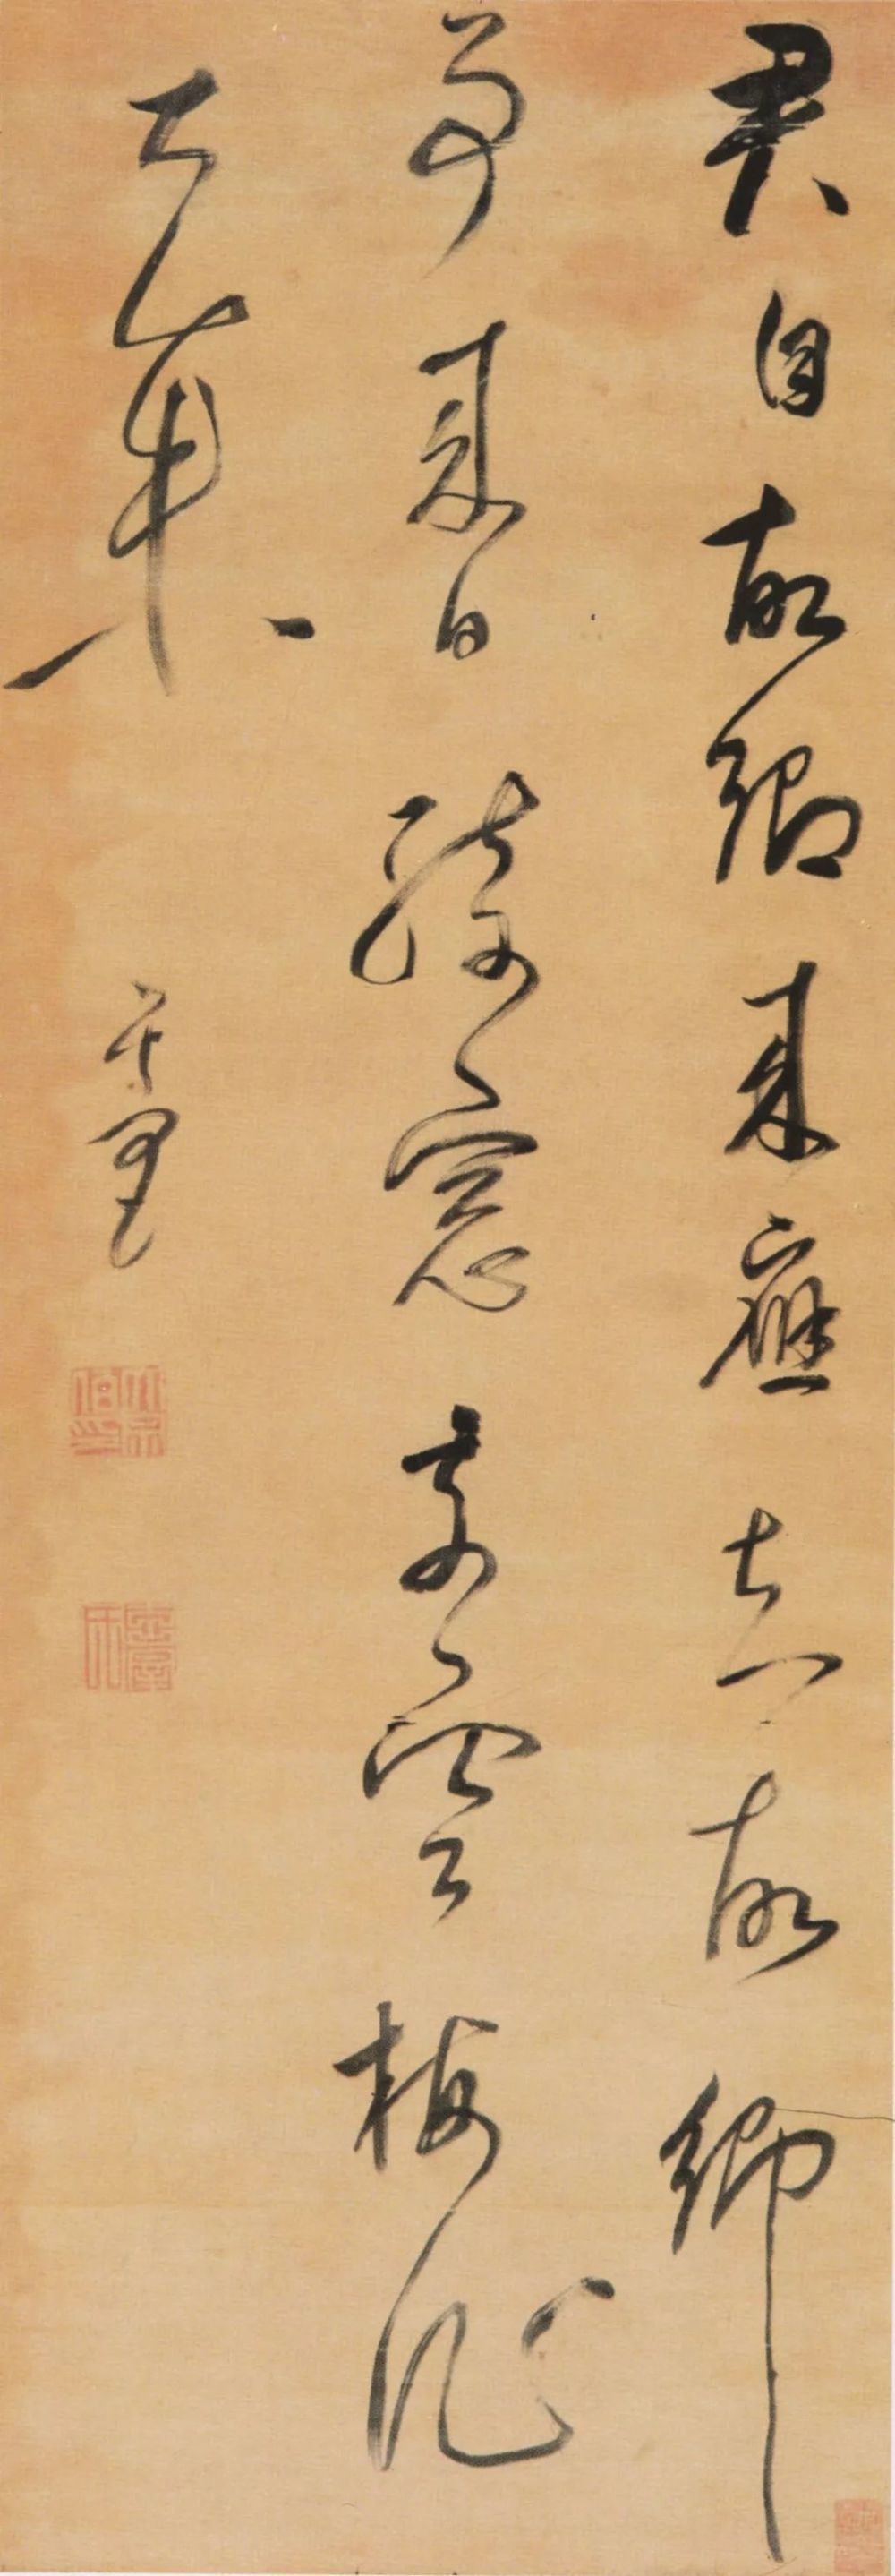 君自故鄉來應知故鄉
事來日綺窓前寒梅花
著未